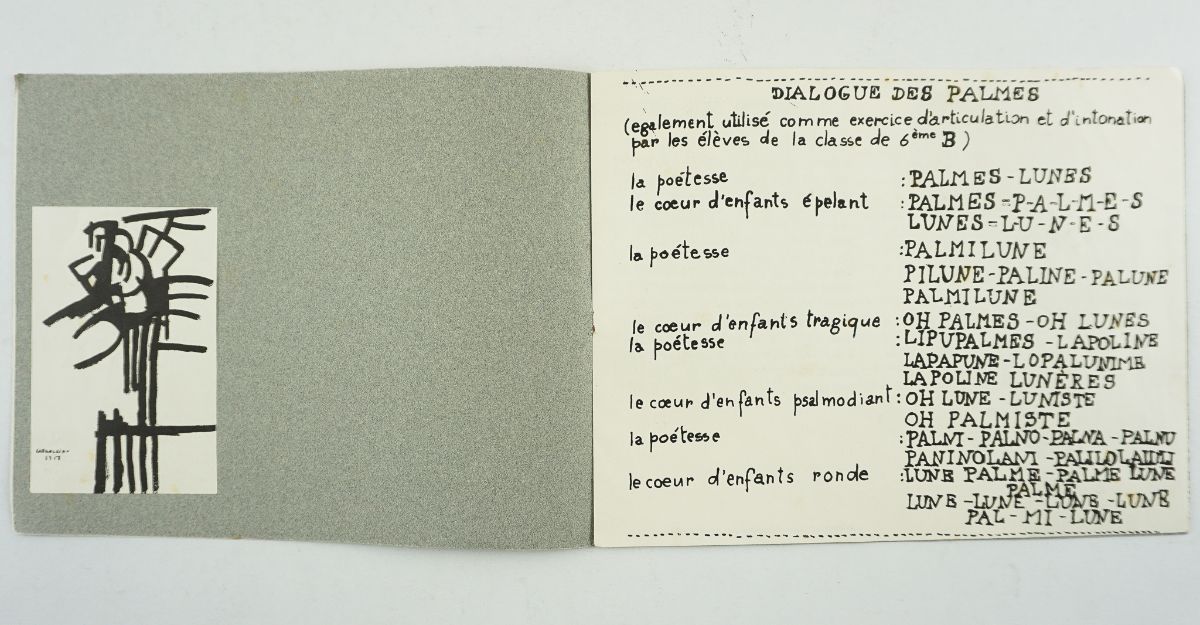 DIALOGUE DES PALMES
(egalement utilisé comme exercice d'articulation et d'intonation
par les élèves de la classe de 6ème B)
la poétesse :PALMES-LUNES
le cœur d'enfants épelant :PALMES-P-A-L-M-E-S
LUNES-L-U-N-E-S
la poétesse :PALMILUNE
PILUNE-PALINE-PALUNE
PALMILUNE
le cœur d'enfants tragique :OH PALMES-OH LUNES
la poétesse :LIPUPALMES-LAPOLINE
LAPAPUNE-LOPALUNIME
LAPOLINE LUNÈRES
le cœur d'enfants psalmodiant:OH LUNE-LUNISTE
OH PALMISTE
la poétesse :PALNI-PALNO-PALNA-PALNU
PANINOLANI-
le coeur d'enfants ronde :LUNE PALME-PALME LUNE
PALME
LUNE-LUNE-LUNE-LUNE
PAL-MI-LUNE